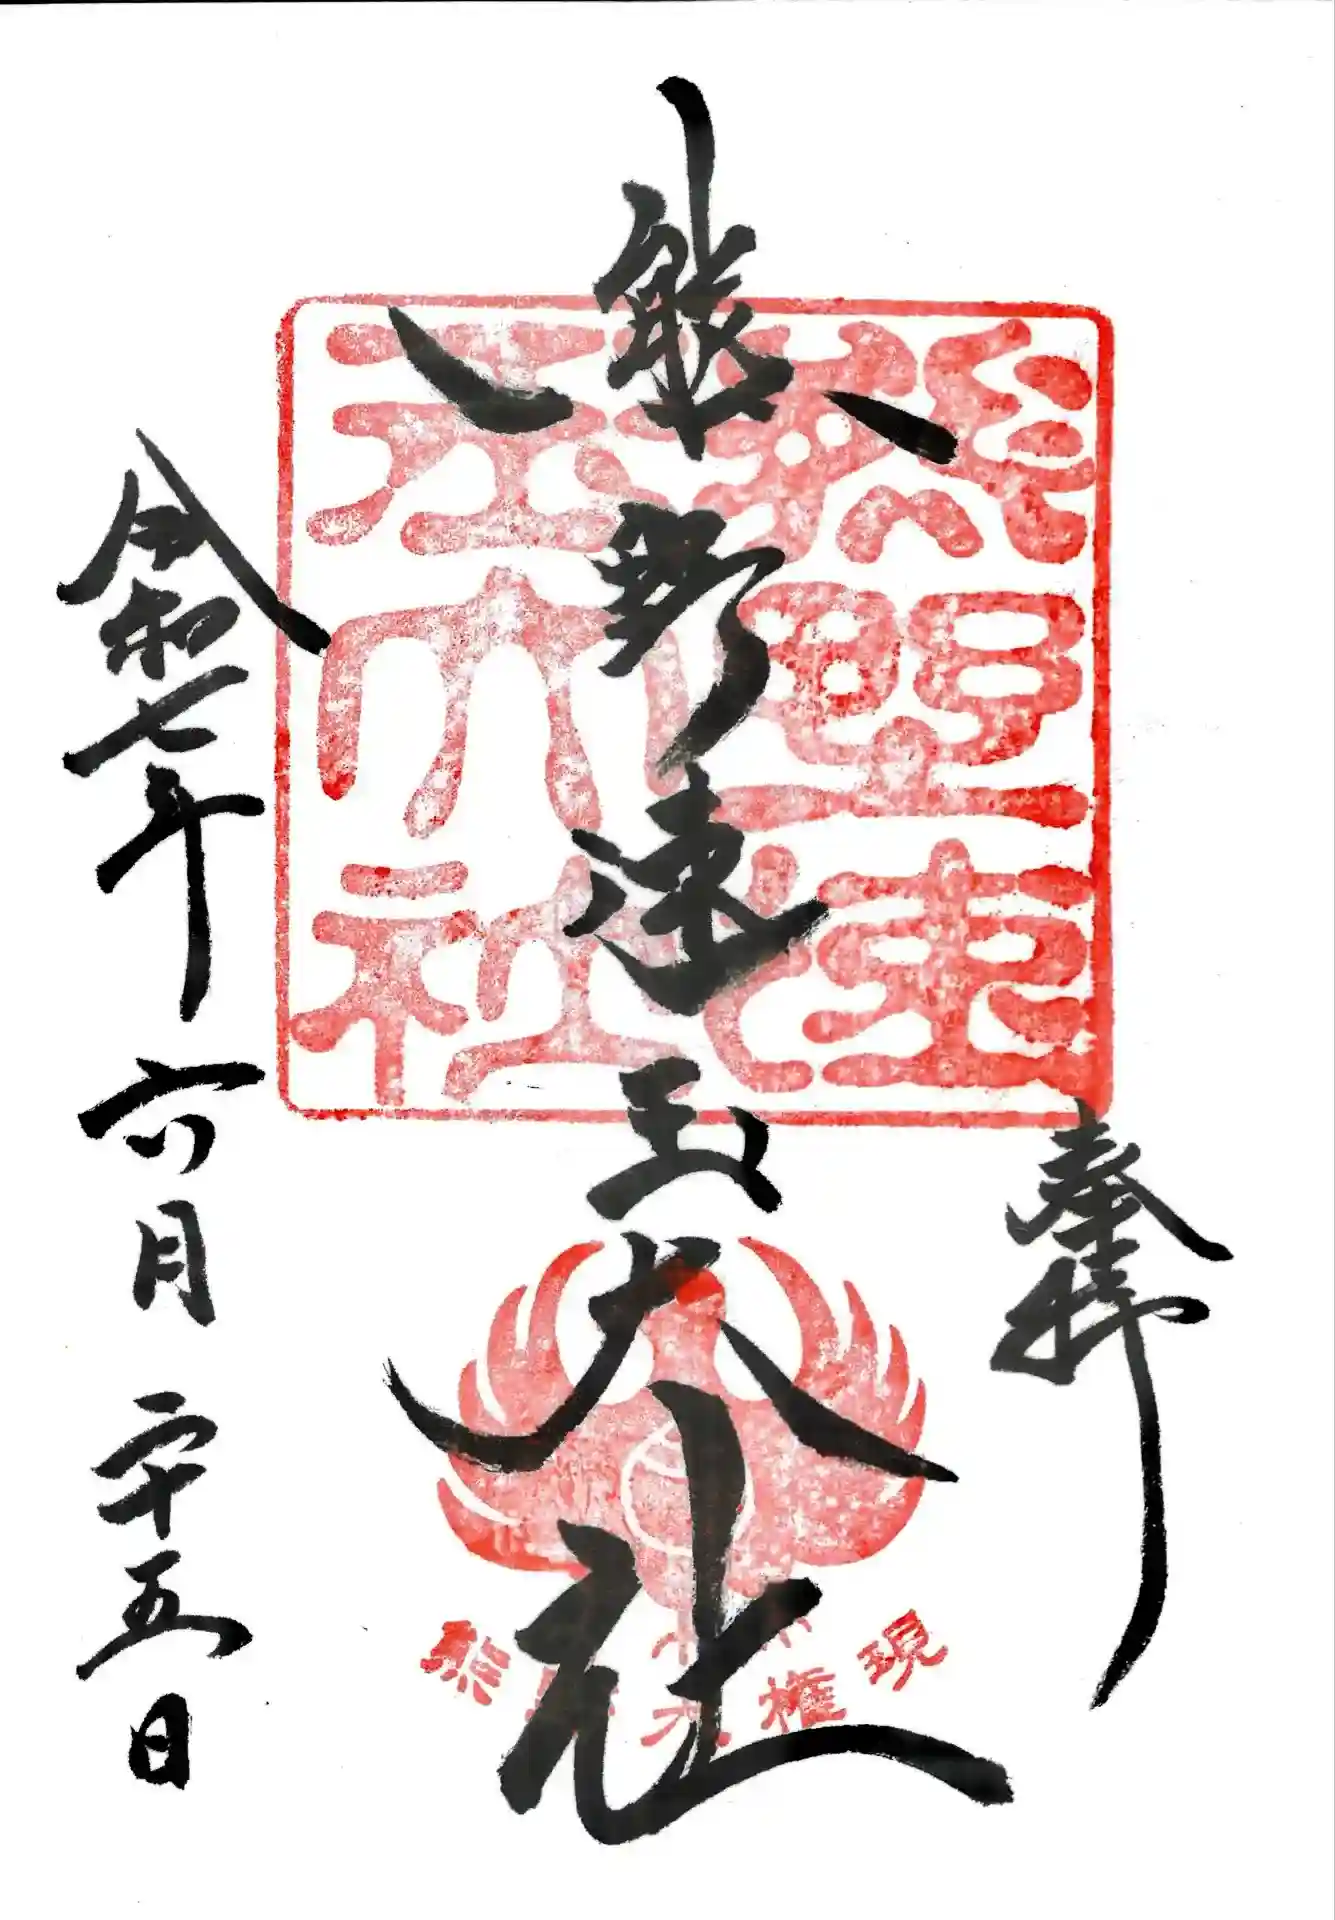 奉拝
熊野速玉大社
令和七年六月二十五日
熊野速玉大社
熊野大権現